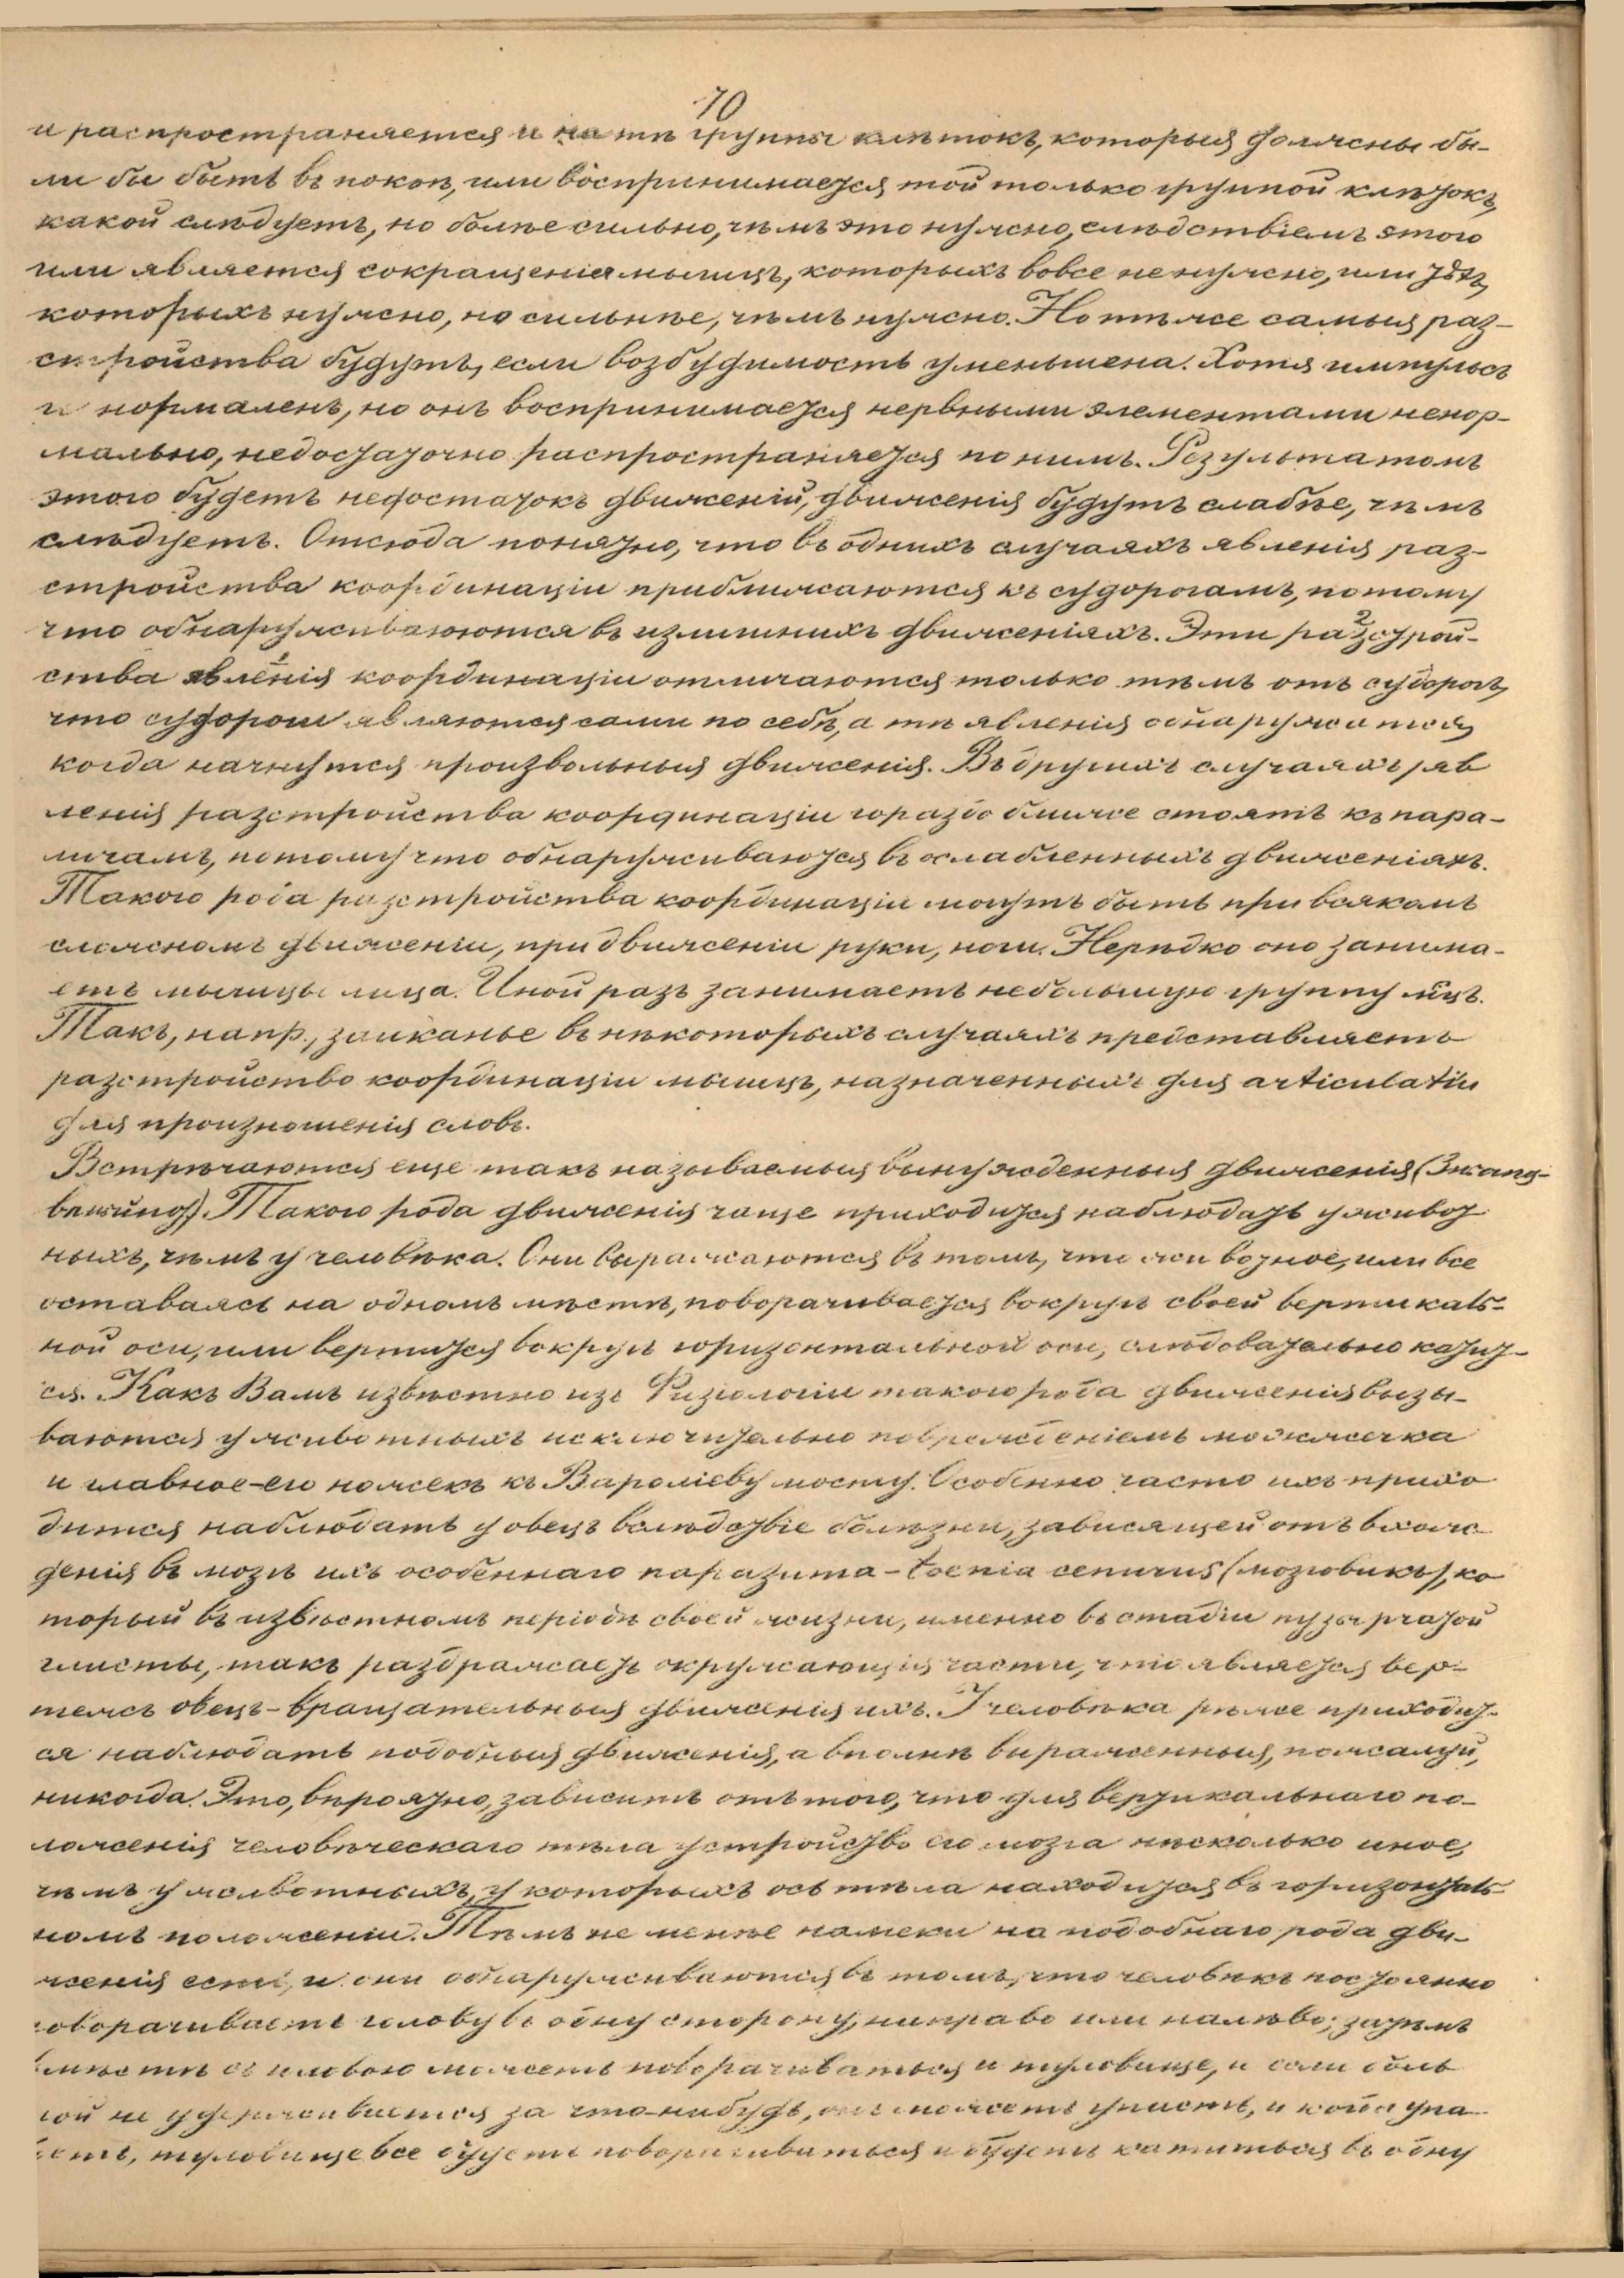 70
и распространяется и на тѣ группы клѣтокъ, которыя должны бы-
ли бы быть въ покоѣ, или воспринимается той только группой клѣтокъ,
какой слѣдуетъ, но болѣе сильно, чѣмъ это нужно, слѣдствіемъ этого
или является сокращенія мышцъ, которыхъ вовсе не нужно, или тѣхъ,
которыхъ нужно, но сильнѣе, чѣмъ нужно. Но тѣже самыя раз-
стройства будутъ, если возбудимость уменьшена. Хотя импульсъ
и нормаленъ, но онъ воспринимается нервными элементами ненор-
мально, недостаточно распространяется по нимъ. Результатомъ
этого будетъ недостатокъ движеній, движенія будутъ слабѣе, чѣмъ
слѣдуетъ. Отсюда понятно, что въ однихъ случаяхъ явленія раз-
стройства координаціи приближаются къ судорогамъ, потому
что обнаруживаются въ излишнихъ движеніяхъ. Эти разстрой-
ства явленія координаціи отличаются только тѣмъ отъ судорогъ,
что судороги являются сами по себѣ, а тѣ явленія обнаружатся,
когда начнутся произвольныя движенія. Въ другихъ случаяхъ яв
ленія разстройства координаціи гораздо ближе стоятъ къ пара-
личамъ, потому что обнаруживаются въ ослабленныхъ движеніяхъ.
Такого рода разстройства координаціи могутъ быть при всякомъ
сложномъ движеніи, при движеніи руки, ноги. Нерѣдко оно занима-
етъ мышцы лица. Иной разъ занимаетъ небольшую группу мцъ.
Такъ, напр., заиканье въ нѣкоторыхъ случаяхъ представляетъ
разстройство координаціи мышцъ, назначенныхъ для articulatiи
для произношенія словъ.
Встрѣчаются еще такъ называемыя вынужденныя движенія (Zwang-
bewegung). Такого рода движенія чаще приходится наблюдать у живот
ныхъ, чѣмъ у человѣка. Они выражаются въ томъ, что животное, или все
оставаясь на одномъ мѣстѣ, поворачивается вокругъ своей вертикаль-
ной оси, или вертится вокругъ горизонтальной оси, слѣдовательно катит-
ся. Какъ Вамъ извѣстно изъ Физіологіи такого рода движенія вызы-
ваются у животныхъ исключительно поврежденіемъ мозжечка
и главное-его ножекъ къ Вароліеву мосту. Особенно часто ихъ прихо
дится наблюдать у овецъ вслѣдствіе болѣзни, зависящей отъ вхож-
денія въ мозгъ ихъ особеннаго паразита - toenia cenurus (мозговикъ), ко
торый въ извѣстномъ періодѣ своей жизни, именно въ стадіи пузырчатой
глисты, такъ раздражаетъ окружающія части, что является вер-
тежъ овецъ - вращательныя движенія ихъ. У человѣка рѣже приходит-
ся наблюдать подобныя движенія, а вполнѣ выраженныя, пожалуй,
никогда. Это, вѣроятно, зависитъ отъ того, что для вертикальнаго по-
ложенія человѣческаго тѣла устройство его мозга нѣсколько иное,
чѣмъ у животныхъ, у которыхъ ось тѣла находится въ горизонталь-
номъ положеніи. Тѣмъ не менѣе намеки на подобнаго рода дви-
женія есть, и они обнаруживаются въ томъ, что человѣкъ постоянно
поворачиваетъ голову въ одну сторону, направо или налѣво; затѣмъ
вмѣстѣ съ головою можетъ поворачиваться и туловище, и если боль
ной не удерживается за что-нибудь, онъ можетъ упасть, и когда упа
детъ, туловище все будетъ поворачиваться и будетъ катиться въ одну